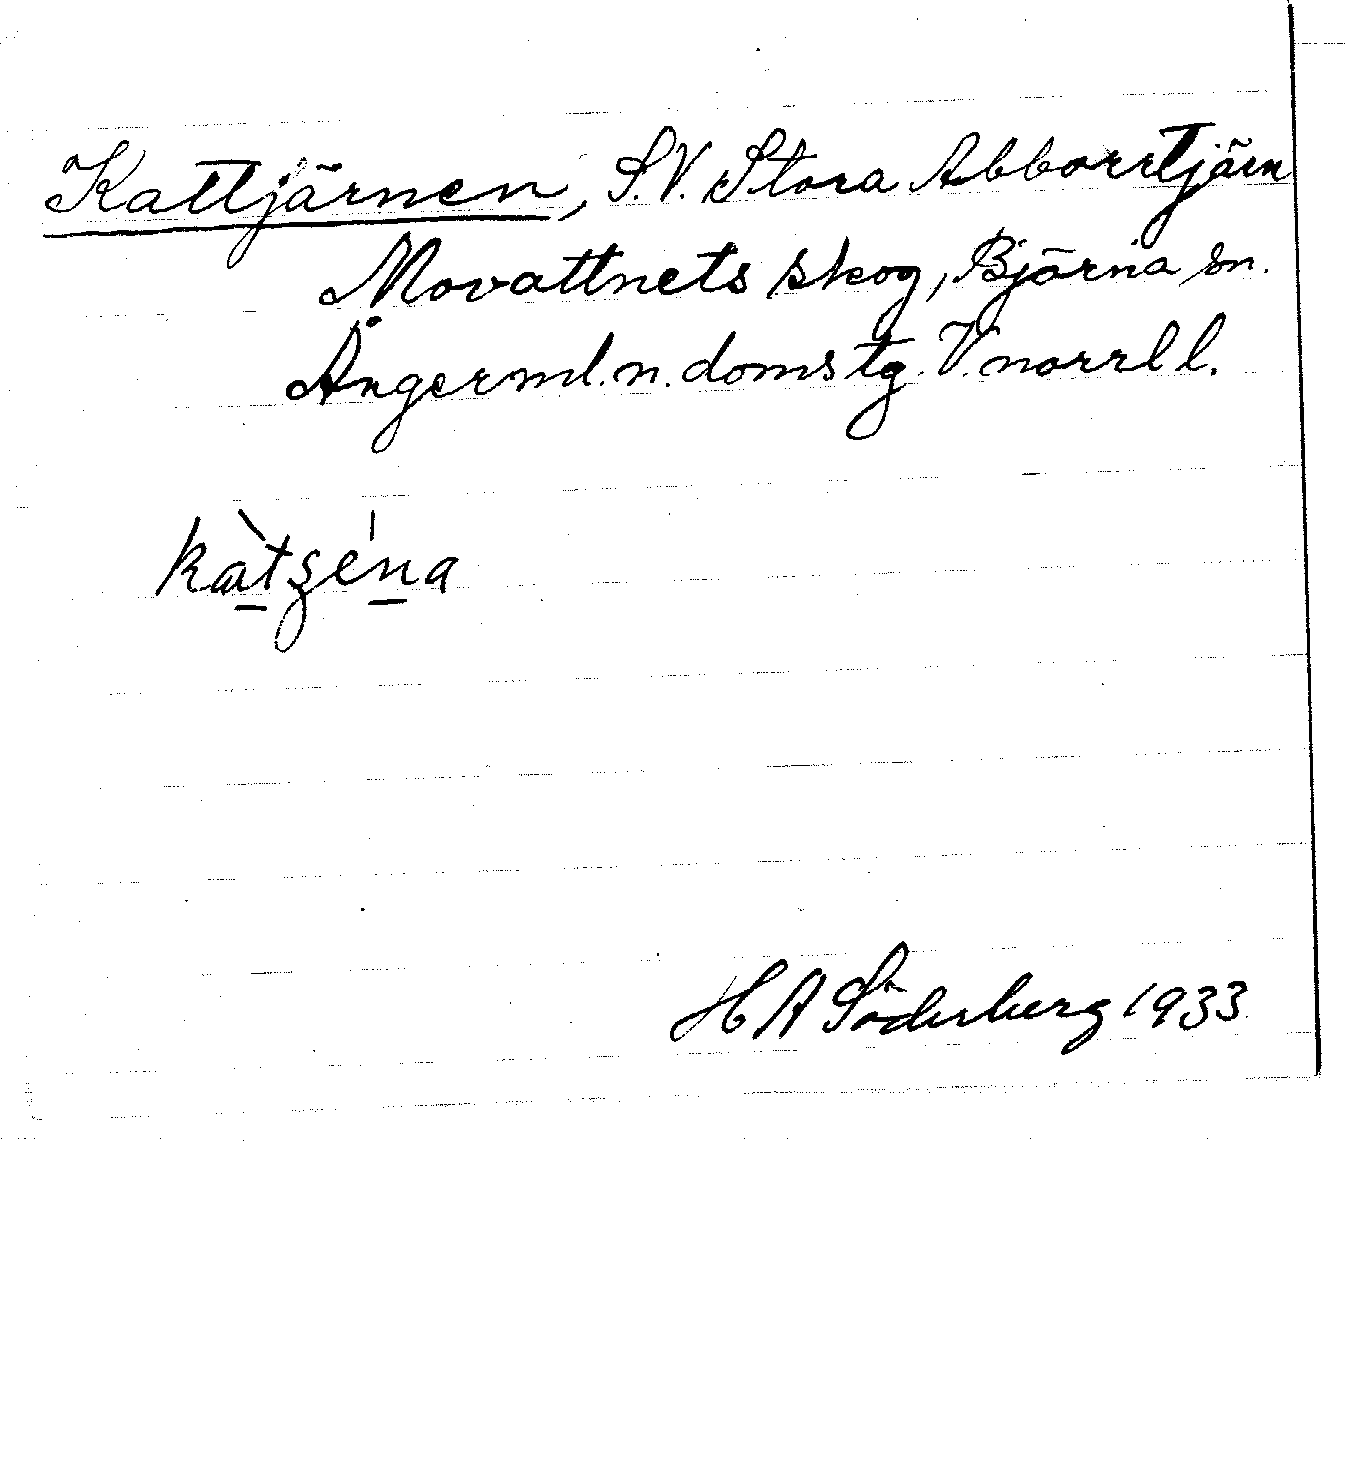 Kattjärnen, S.V. Stora Abborrtjärn
Movattnets skog, Björna sn.
Ångerml. n. domstg. V. norrl l.
H A Söderberg 1933